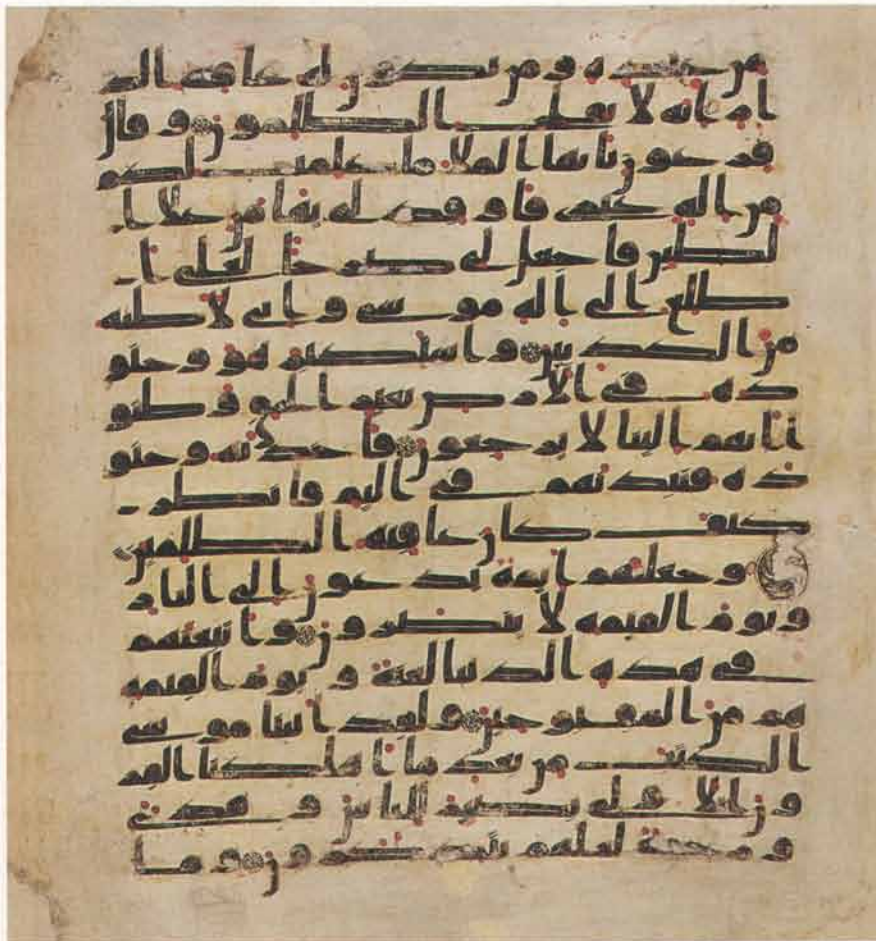 من عنده ومن تكون له عاقبة الد
ار انه لا يفلح الظلمون وقال
فرعون يايها الملا ما علمت لكم
من اله غيرى فاوقد لى يهامن على ا
لطين فاجعل لى صرحا لعلى ا
طلع الى اله موسى وانى لاظنه
من الكذبين واستكبر هو وجنو
ده فى الارض بغير الحق وظنو
ا انهم الينا لا يرجعون فاخذنه وجنو
ده فنبذنهم فى اليم فانظر
كيف كان عاقبة الظلمين
وجعلنهم ايمة يدعون الى النار
ويوم القيمة لا ينصرون واتبعنهم
فى هذه الدنيا لعنة ويوم القيمة
هم من المقبوحين ولقد اتينا موسى
الكتب من بعد ما اهلكنا القر
ون الاولى بصير للناس وهدى
ورحمة لعلهم يتذكرون وما